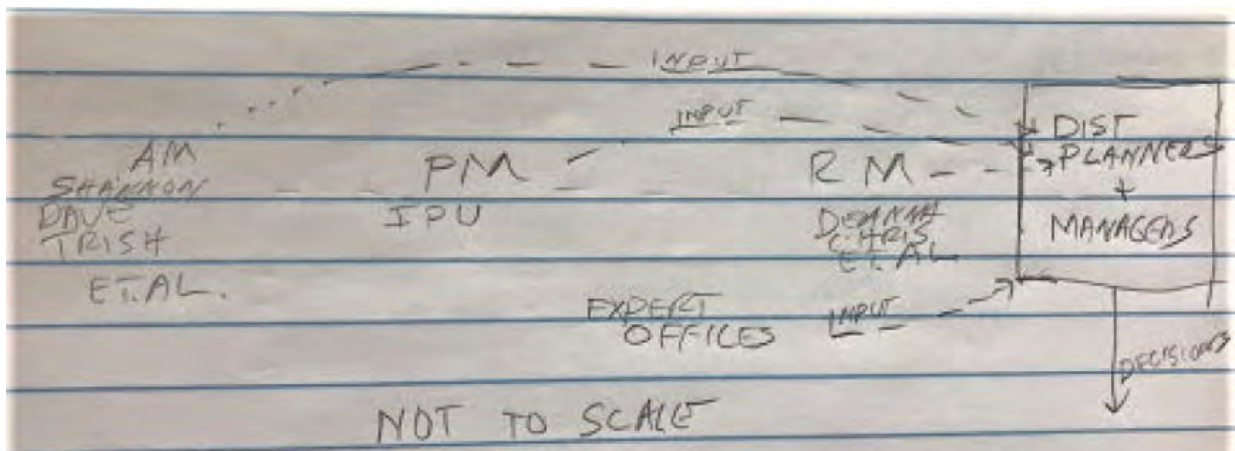 INPUT
INPUT
AM
SHANNON
DAVE
TRISH
ET. AL.
PM
IPU
RM
DEANNA
CHRIS
ET. AL
DIST
PLANNERS
+
MANAGERS
EXPERT
OFFICES
INPUT
DECISIONS
NOT TO SCALE